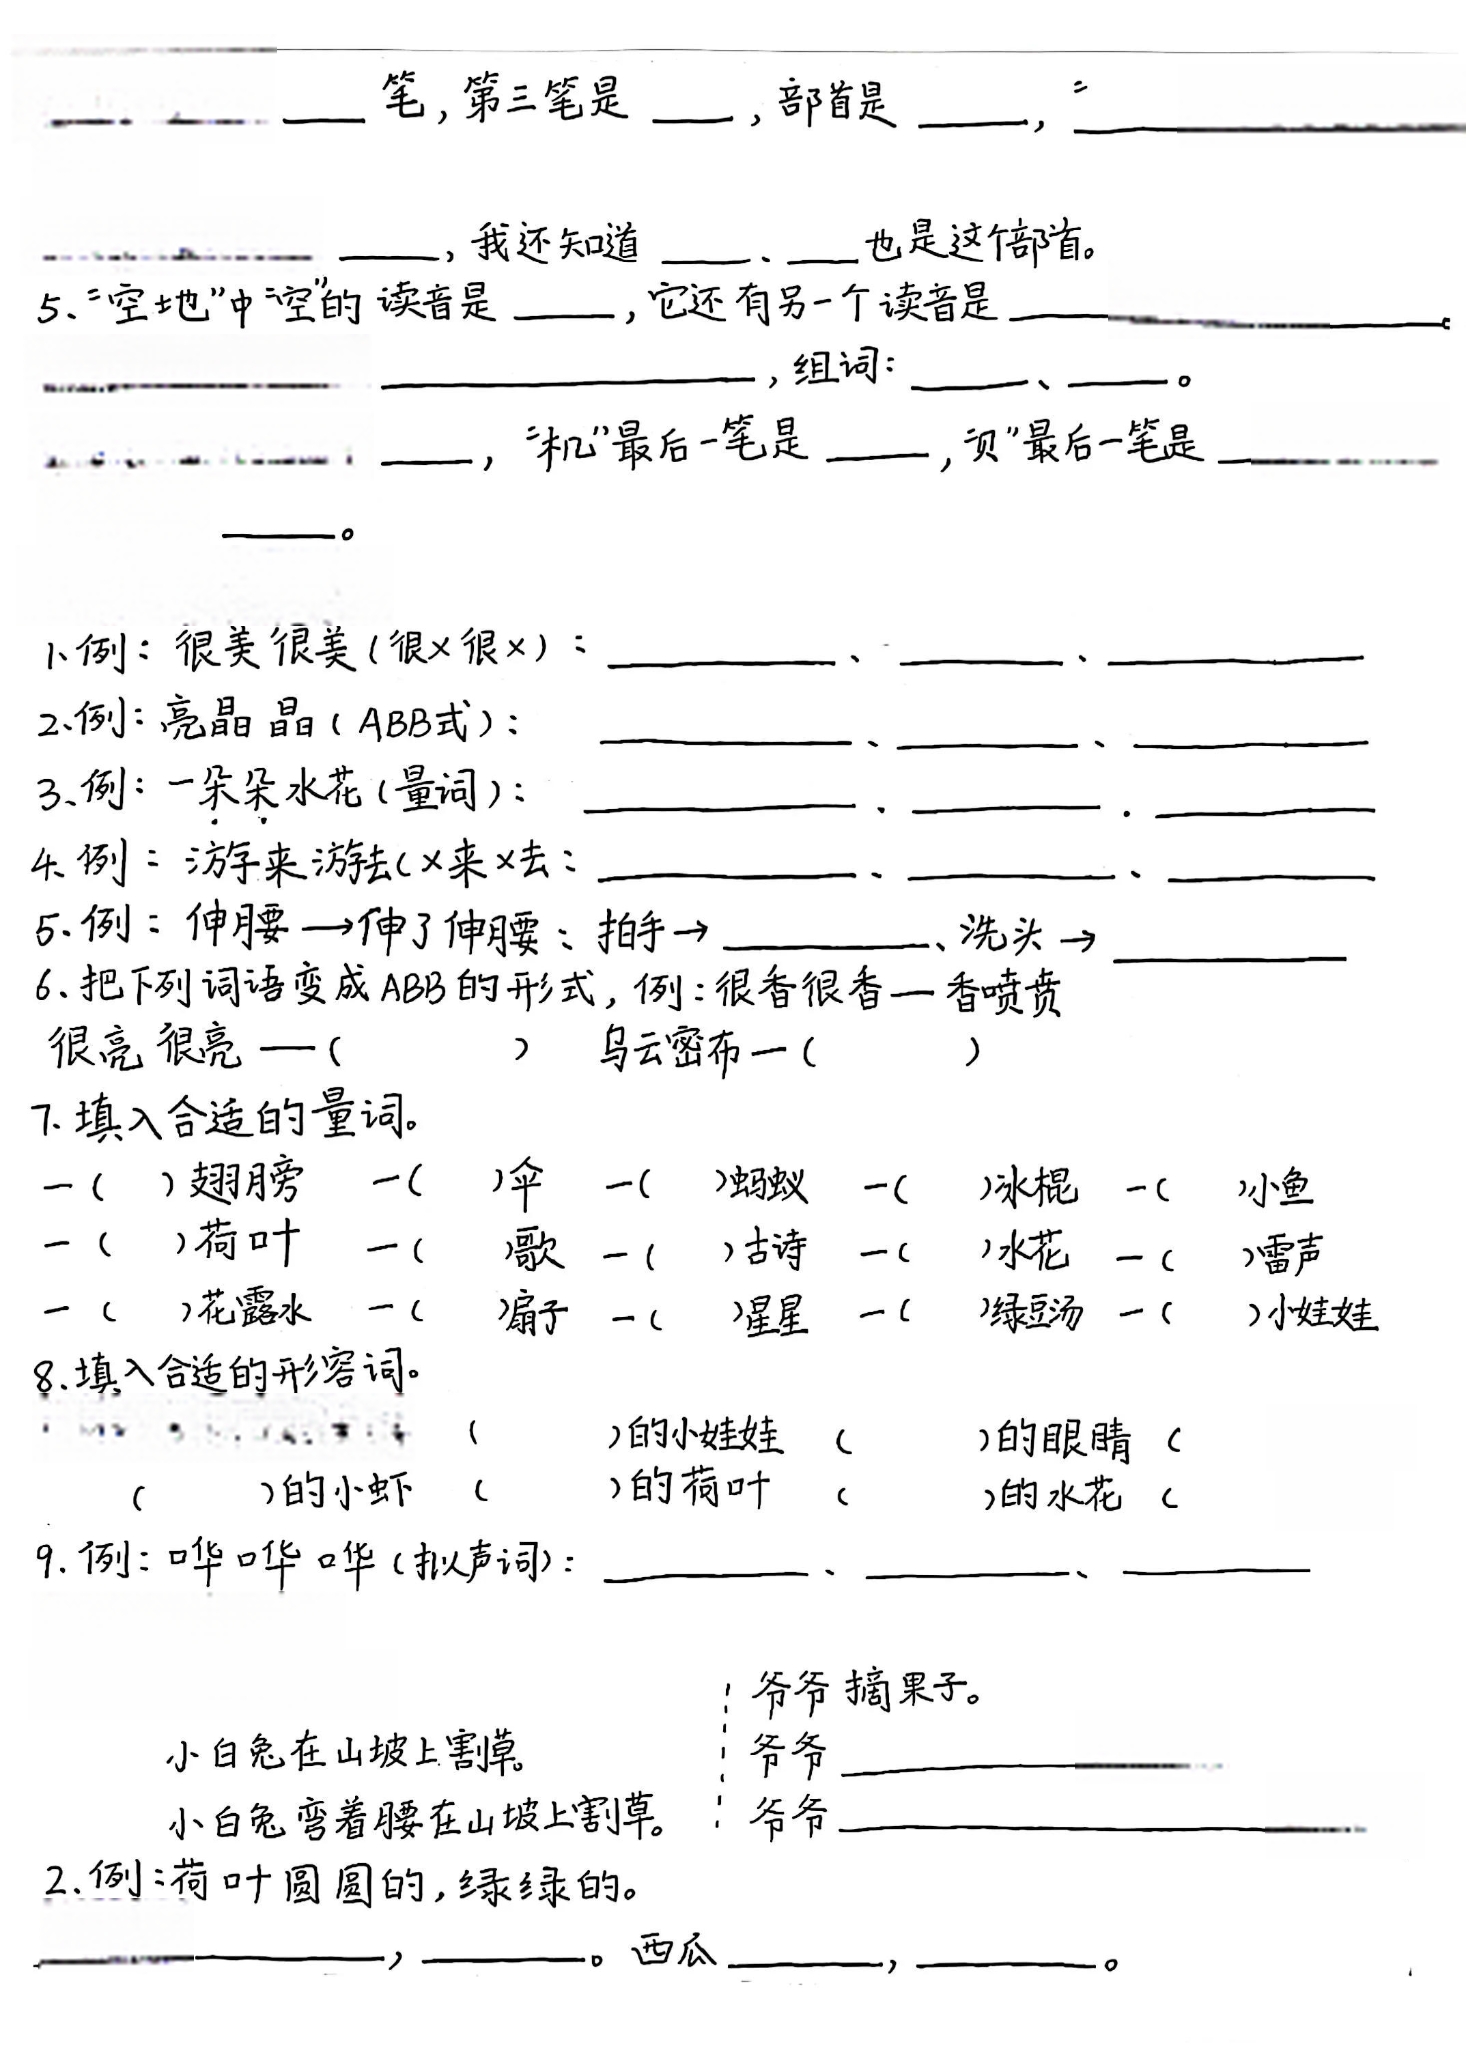 ____ 笔，第三笔是 ____，部首是 ____，“____
____，我还知道 ____、____也是这个部首。
5、“空地”中“空”的读音是 ____，它还有另一个读音是 ____。
____，组词：____、____。
____，“机”最后一笔是 ____，“贝”最后一笔是 ____
____。
1、例：很美很美（很×很×）：____、____、____
2、例：亮晶晶（ABB式）：____、____、____
3、例：一朵朵水花（量词）：____、____、____
4、例：游来游去（×来×去：____、____、____
5、例：伸腰→伸了伸腰：拍手→____、洗头→____
6、把下列词语变成ABB的形式，例：很香很香—香喷喷
很亮很亮—（ ） 乌云密布—（ ）
7、填入合适的量词。
一（ ）翅膀 一（ ）伞 一（ ）蚂蚁 一（ ）冰棍 一（ ）小鱼
一（ ）荷叶 一（ ）歌 一（ ）古诗 一（ ）水花 一（ ）雷声
一（ ）花露水 一（ ）扇子 一（ ）星星 一（ ）绿豆汤 一（ ）小娃娃
8、填入合适的形容词。
（ ）的小娃娃 （ ）的眼睛 （
（ ）的小虾 （ ）的荷叶 （ ）的水花 （
9、例：哗哗哗（拟声词）：____、____、____
爷爷摘果子。
小白兔在山坡上割草。 爷爷____
小白兔弯着腰在山坡上割草。 爷爷____
2、例：荷叶圆圆的，绿绿的。
____，____。西瓜____，____。